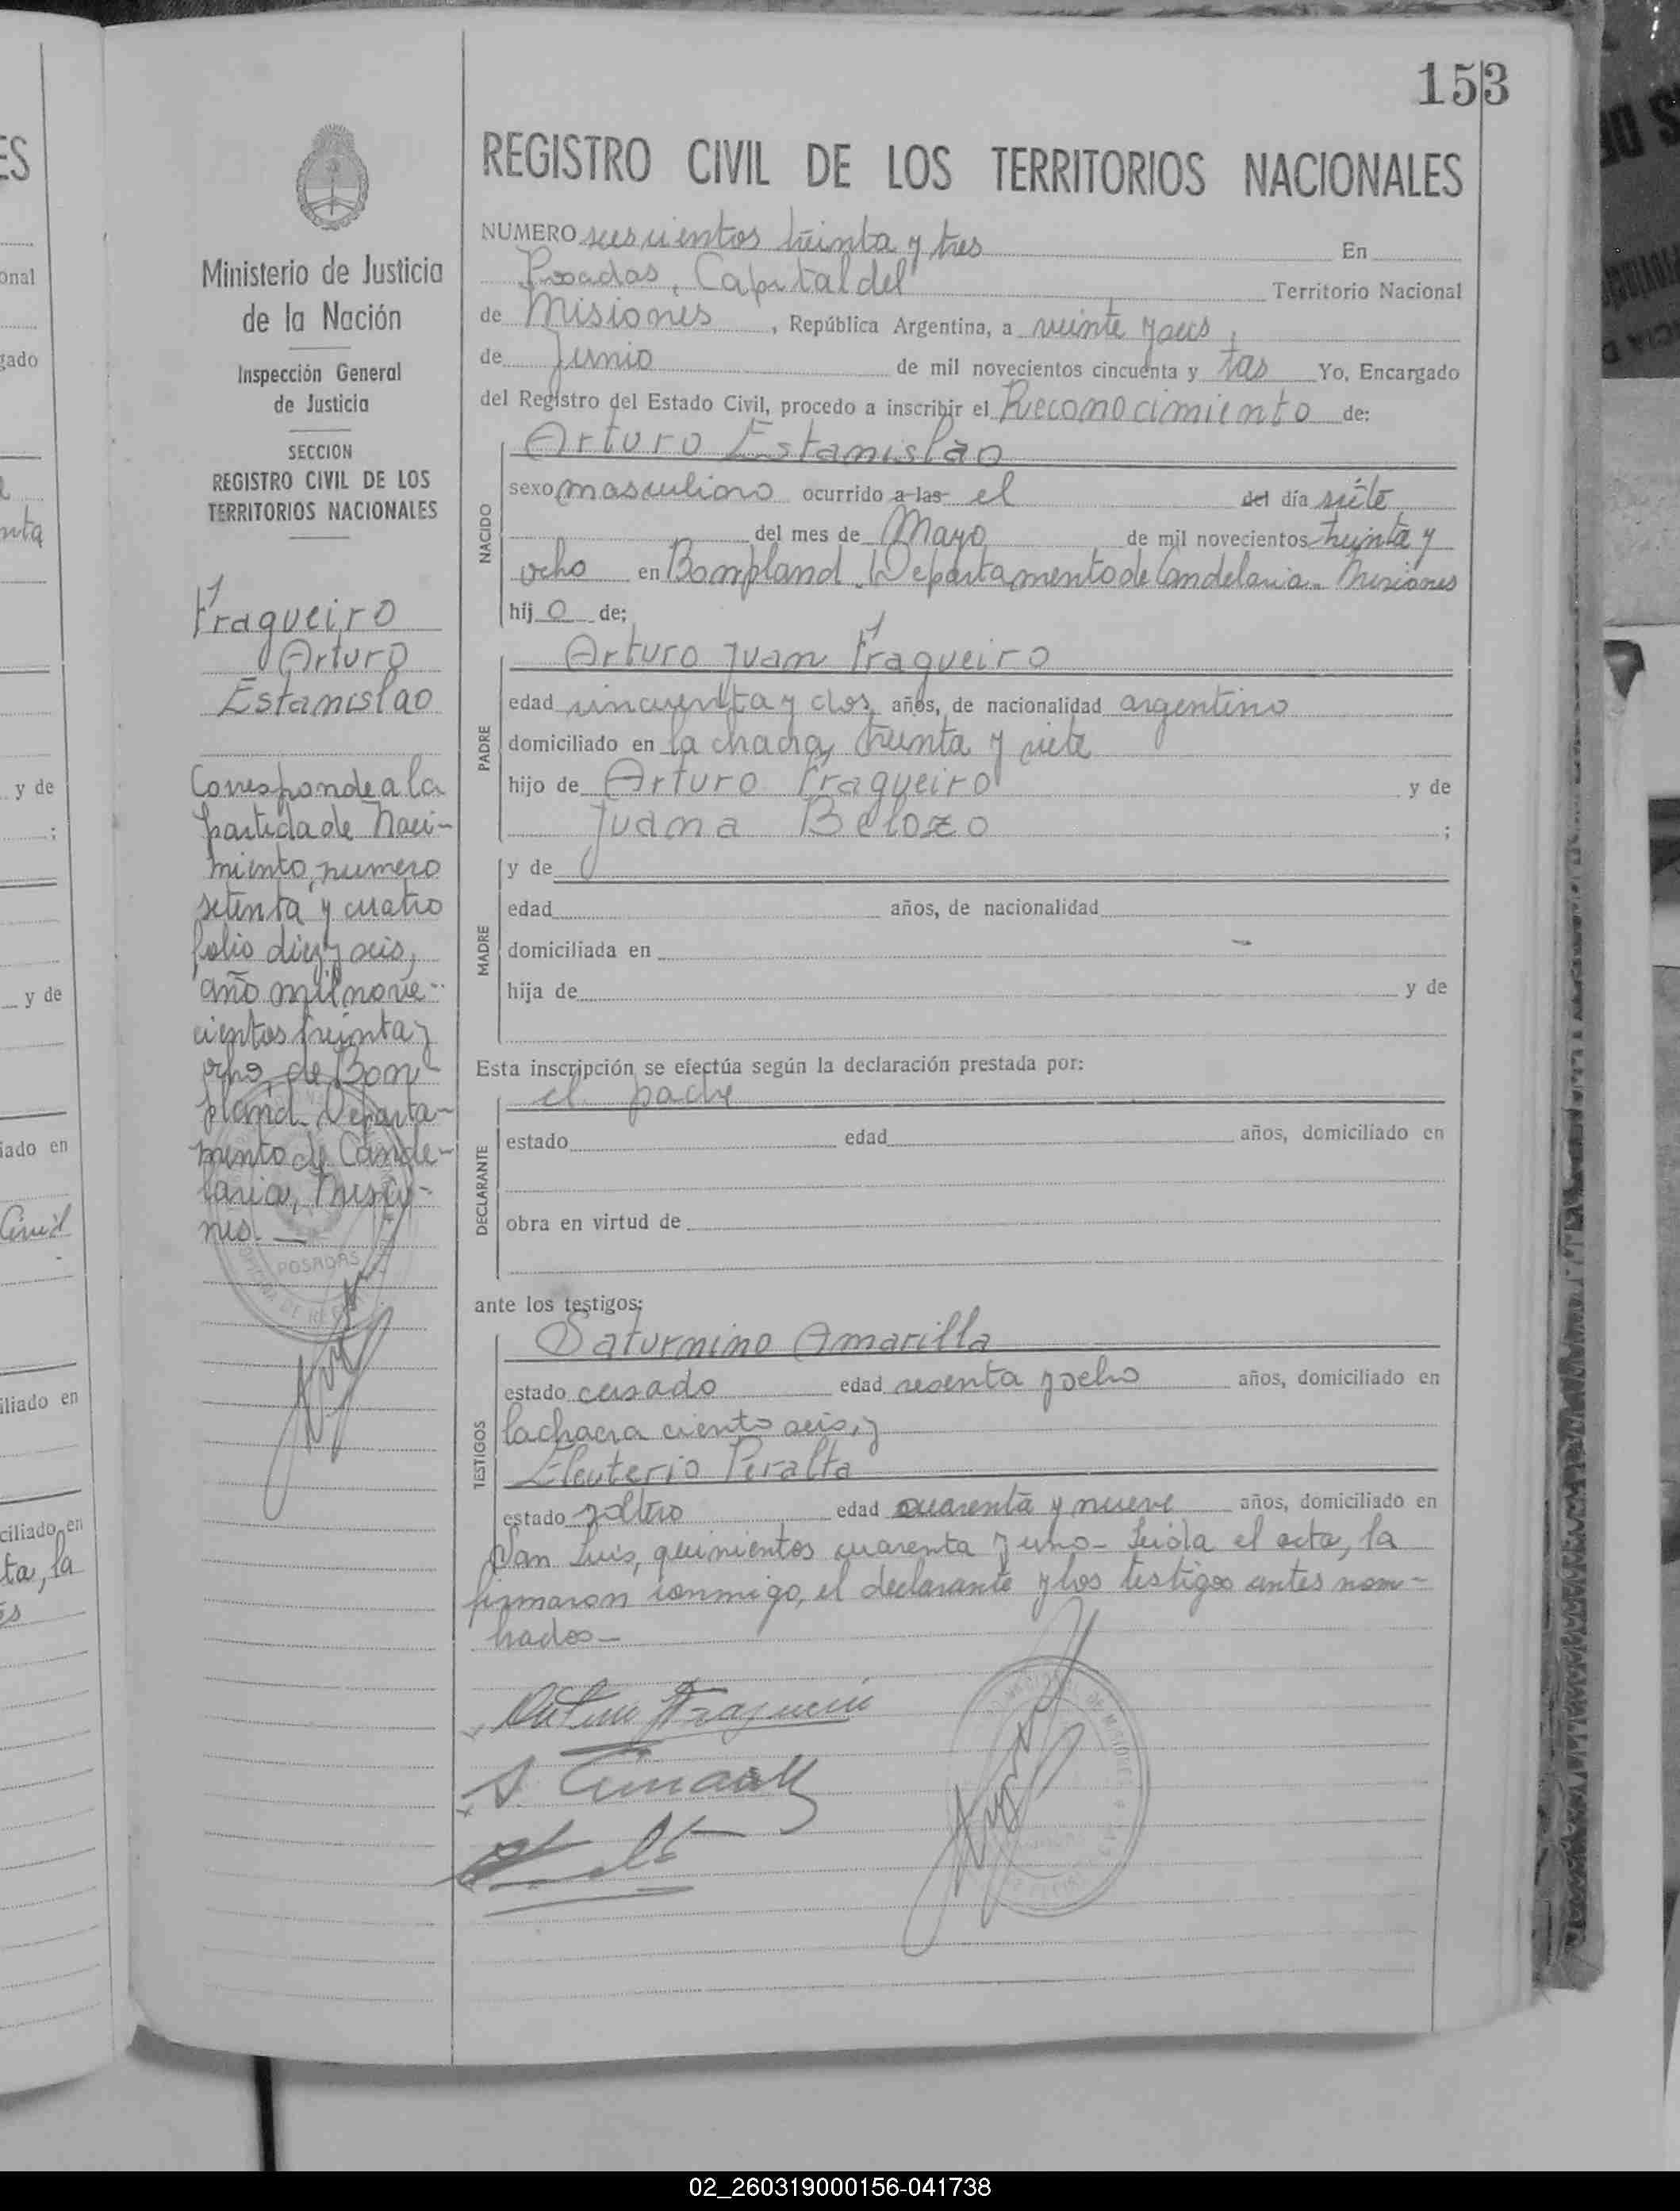 153
REGISTRO CIVIL DE LOS TERRITORIOS NACIONALES
NUMERO seiscientos treinta y tres En
Posadas, Capital del Territorio Nacional
de Misiones, República Argentina, a veinte y seis,
de Junio de mil novecientos cincuenta y tres Yo, Encargado
del Registro del Estado Civil, procedo a inscribir el Reconocimiento de:
Arturo Estanislao
NACIDO
sexo masculino ocurrido a las el del día siete
del mes de Mayo de mil novecientos treinta y
ocho en Bompland Departamento de Candelaria - Misiones
hij o de;
PADRE
Arturo Juan Fragueiro
edad cincuenta y dos años, de nacionalidad argentino
domiciliado en la chacra, treinta y siete
hijo de Arturo Fragueiro y de
Juana Belozo ;
MADRE
y de
edad años, de nacionalidad
domiciliada en
hija de y de
Esta inscripción se efectúa según la declaración prestada por:
DECLARANTE
el padre
estado edad años, domiciliado en
obra en virtud de
ante los testigos:
TESTIGOS
Saturnino Amarilla
estado casado edad sesenta y ocho años, domiciliado en
la chacra ciento seis, y
Eleuterio Peralta
estado soltero edad cuarenta y nueve años, domiciliado en
San Luis, quinientos cuarenta y uno - Leida el acta, la
firmaron conmigo, el declarante y los testigos antes nom-
brados -
Arturo Fragueiro
Ministerio de Justicia
de la Nación
Inspección General
de Justicia
SECCION
REGISTRO CIVIL DE LOS
TERRITORIOS NACIONALES
Fragueiro
Arturo
Estanislao
Corresponde a la
partida de Naci-
miento, numero
setenta y cuatro
folio diez y seis,
año mil nove-
cientos treinta y
ocho, de Bon-
pland. Departa-
mento de Cande-
laria, Misio-
nes. -
POSADAS
ES
onal
gado
nta
y de
;
y de
iado en
Civil
iliado en
ciliado en
ta, la
es
02_260319000156-041738